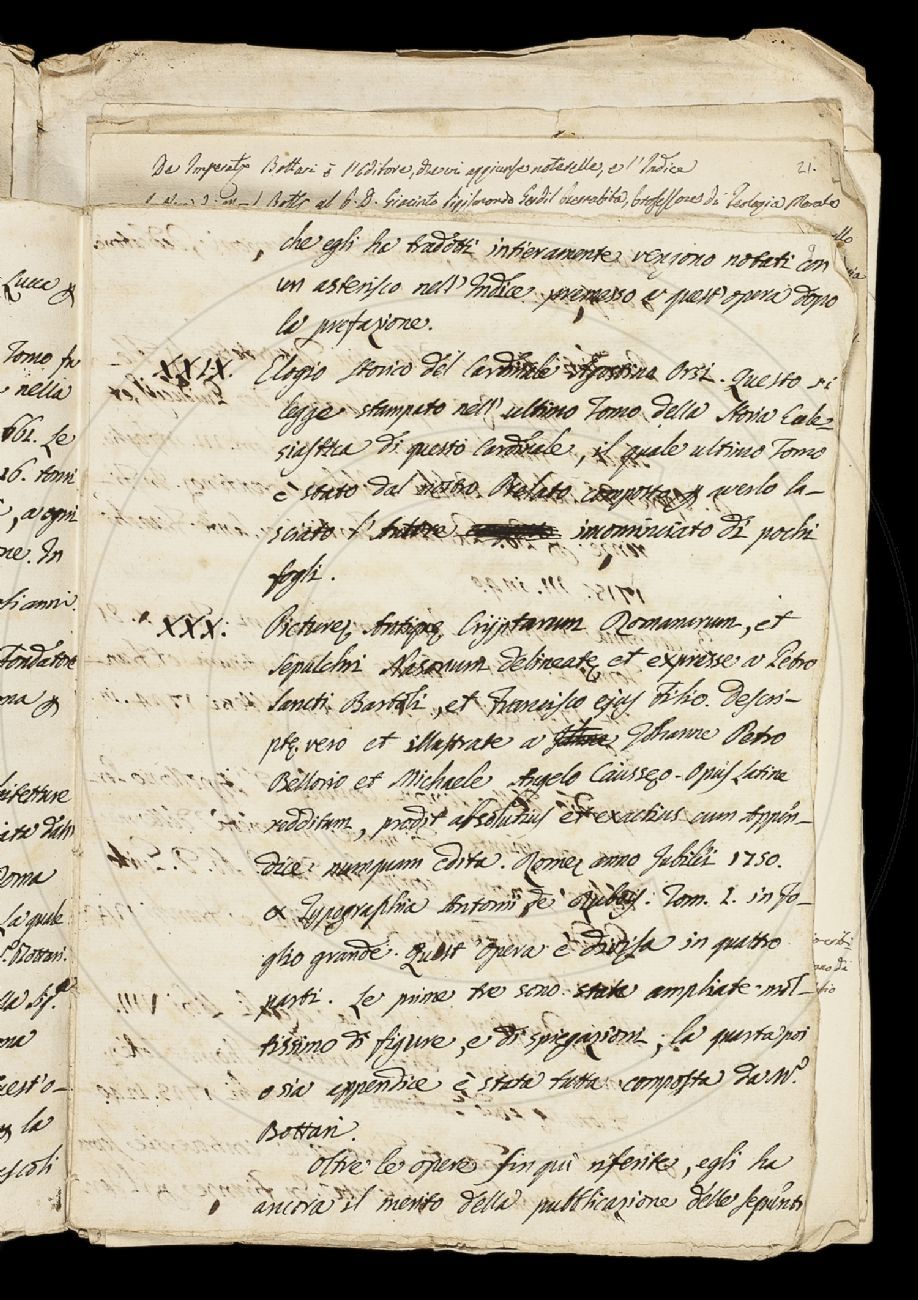 21.
Bottari è l'Editore, che vi aggiunse notarelle, e l'Indice
al P. D. Giacinto Sigismondo Gerdil Barnabita, Professore di Teologia Morale
che egli ha tradotti intieramente vengono notati con
un asterisco nell'Indice premesso a quest'opera dopo
la prefazione.
XXIX. Elogio storico del Cardinale Agostino Orsi. Questo si
legge stampato nell'ultimo Tomo della Storia Eccle-
siastica di questo Cardinale, il quale ultimo Tomo
è stato dal nostro Prelato composto p averlo la-
sciato l'Autore incominciato di pochi
fogli.
XXX. Picturę Antiquę Cryptarum Romanarum, et
Sepulchri Nasonum delineatę et expresse a Petro
Sancti Bartoli, et Francisco ejus Filio. Descri-
ptę vero et illustrate a Johanne Petro
Bellorio et Michaele Angelo Causseo. Opus Latine
redditum, prodit absolutius et exactius cum Appen-
dice numquam edita. Romę anno Jubilei 1750.
ex Typographia Antonii de Rubeis: Tom. I. in fo-
glio grande. Quest'opera è divisa in quattro
parti. Le prime tre sono state ampliate mol-
tissimo di figure, e di spiegazioni; la quarta poi
o sia appendice è stata tutta composta da Mr.
Bottari.
Oltre le opere fin quì riferite, egli ha
ancora il merito della pubblicazione delle seguenti
Lucca p
Tomo fu
nella
Le
16. tomi
, a ogni
ne. In
Fondatore
Roma
La quale
Bottari.
la